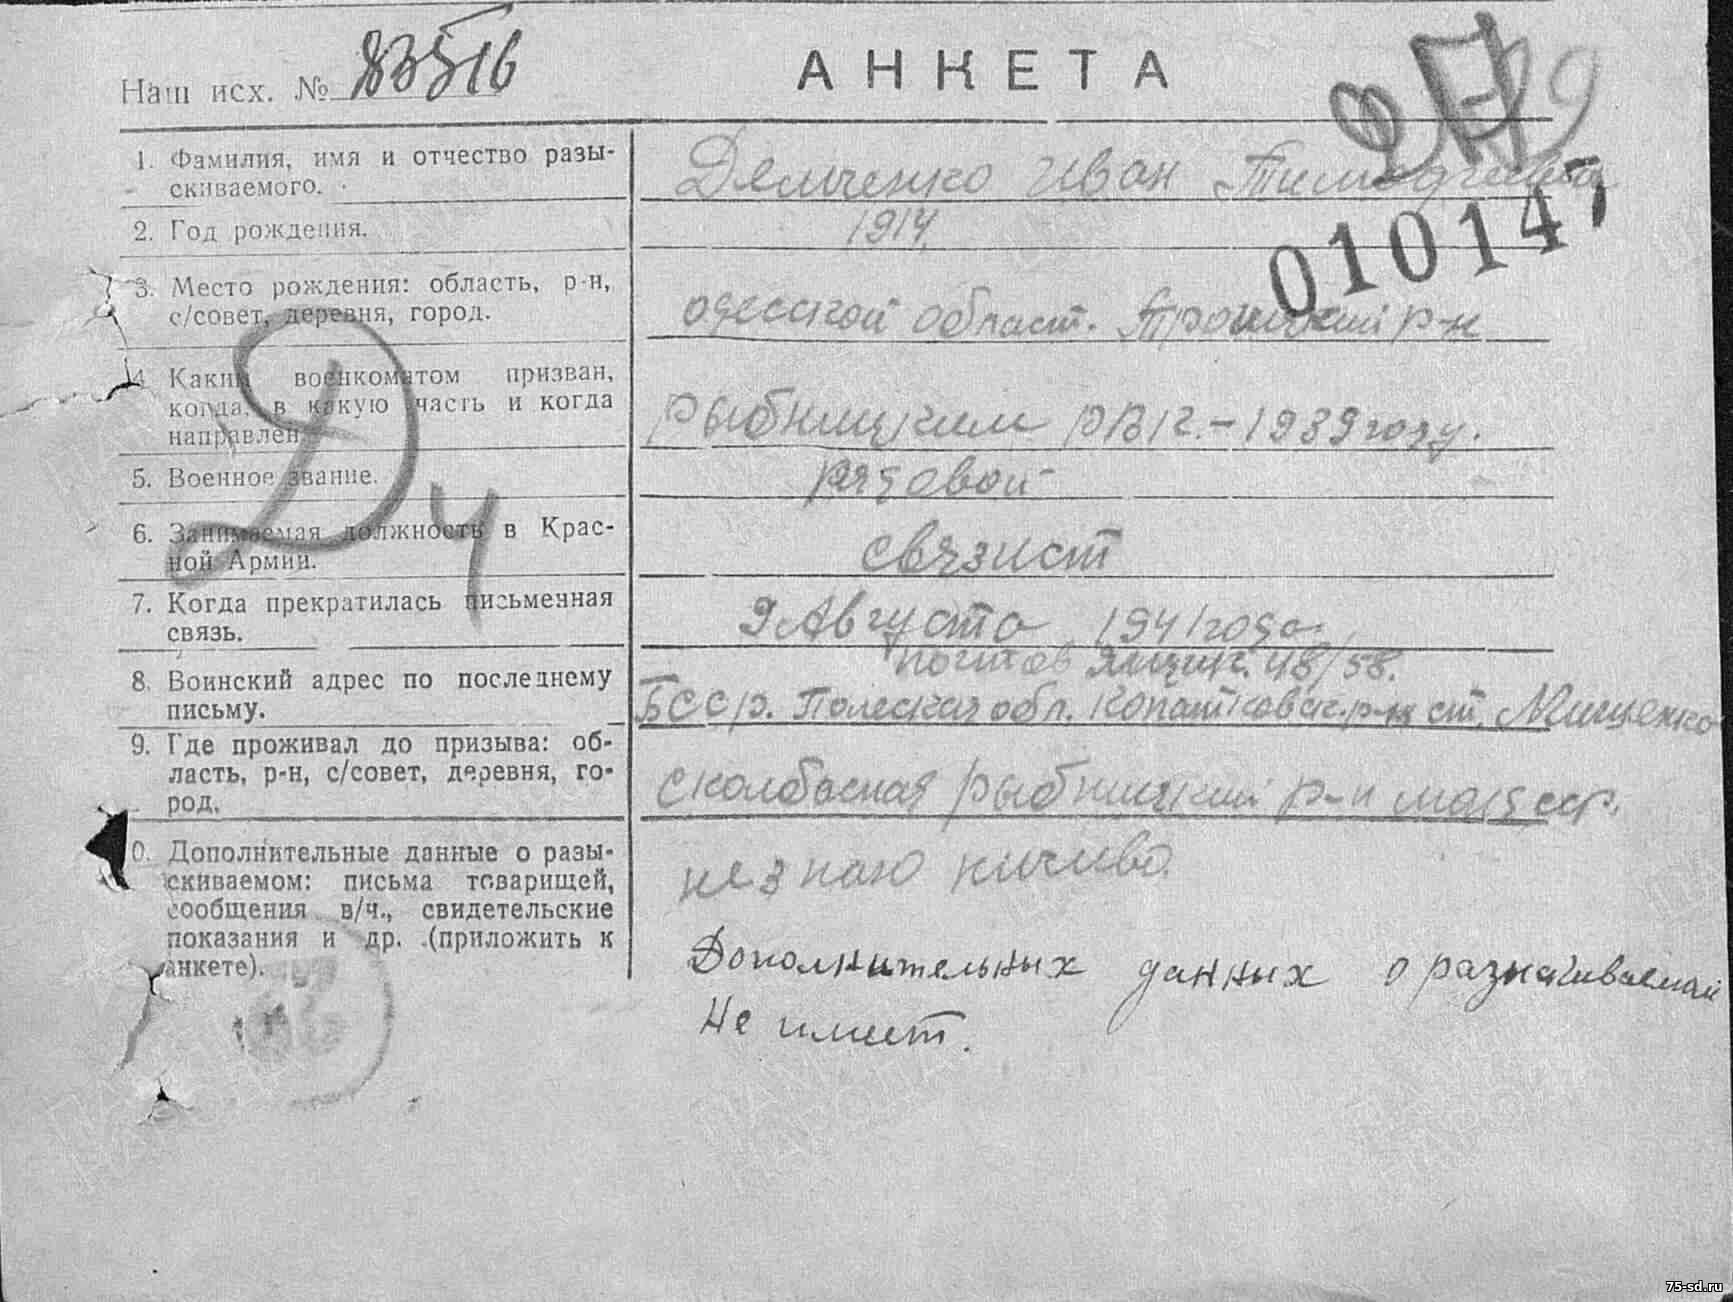 Наш исх. № 83516
АНКЕТА
010147
1. Фамилия, имя и отчество разы-
скиваемого.
Демченко Иван
2. Год рождения.
1914
3. Место рождения: область, р-н,
с/совет, деревня, город.
одесской област. р-н
4. Каким военкоматом призван,
когда, в какую часть и когда
направлен.
рыбницким рвк.-1939 году.
5. Военное звание.
рядовой
6. Занимаемая должность в Крас-
ной Армии.
связист
7. Когда прекратилась письменная
связь.
9 Августа 1941 года
8. Воинский адрес по последнему
письму.
почтов ящик. 48/58.
БССр. Полеская обл. р-н ст.
9. Где проживал до призыва: об-
ласть, р-н, с/совет, деревня, го-
род.
рыбницкий р-н молд сср.
0. Дополнительные данные о разы-
скиваемом: письма товарищей,
сообщения в/ч., свидетельские
показания и др. (приложить к
анкете).
незнаю ничиво.
Дополнительных данных о
Не имеет.
Д
ч
75-sd.ru